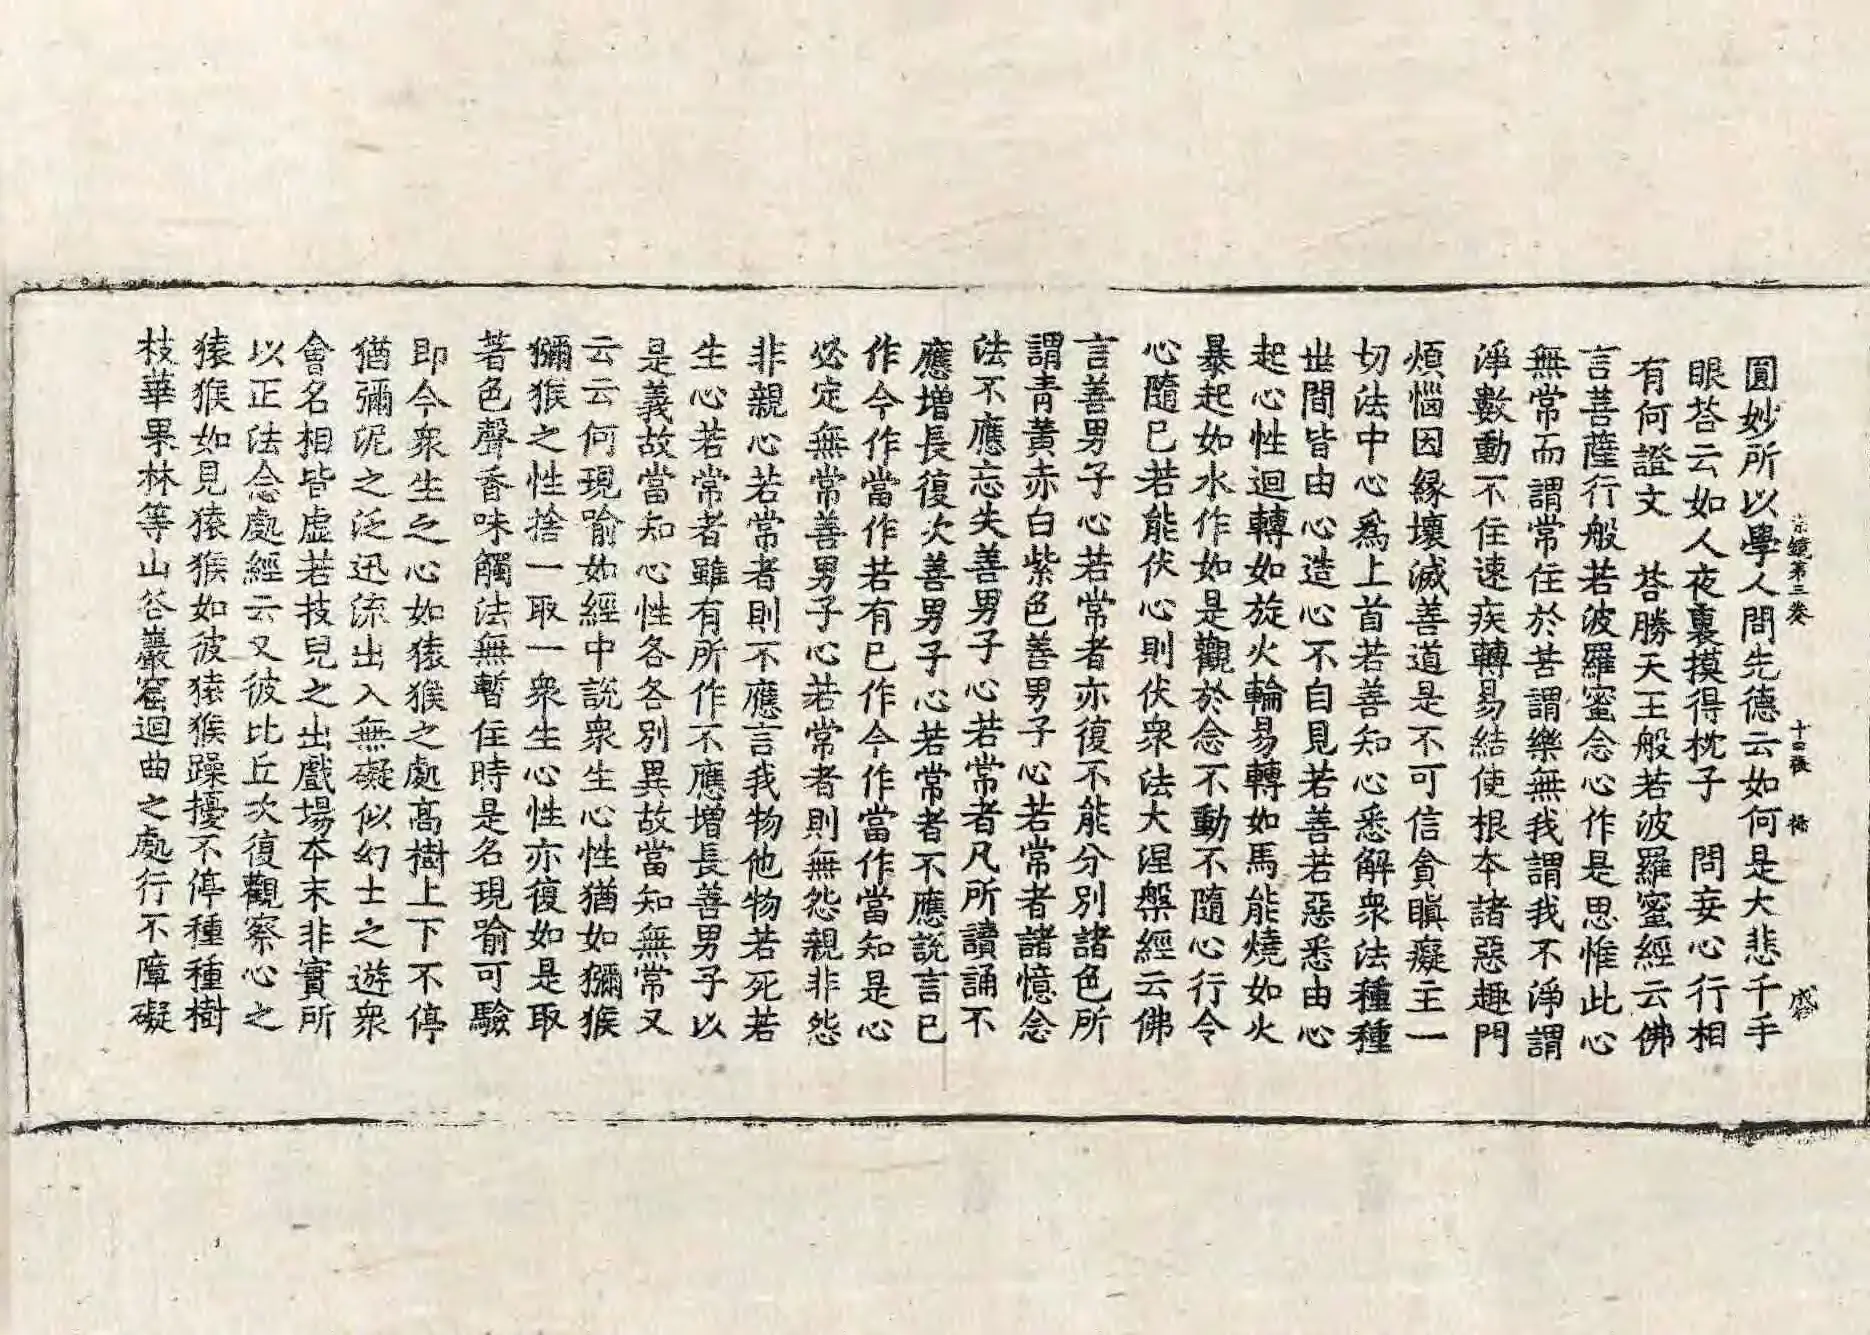 宗鏡第三卷　十四張
圓妙所以學人問先德云如何是大悲千手
眼荅云如人夜裏摸得枕子　問妄心行相
有何證文　荅勝天王般若波羅蜜經云佛
言菩薩行般若波羅蜜念心作是思惟此心
無常而謂常住於苦謂樂無我謂我不淨謂
淨數動不住速疾轉易結使根本諸惡趣門
煩惱因緣壞滅善道是不可信貪瞋癡主一
切法中心爲上首若善知心悉解衆法種種
世間皆由心造心不自見若善若惡悉由心
起心性迴轉如旋火輪易轉如馬能燒如火
暴起如水作如是觀於念不動不隨心行令
心隨已若能伏心則伏衆法大涅槃經云佛
言善男子心若常者亦復不能分別諸色所
謂青黃赤白紫色善男子心若常者諸憶念
法不應忘失善男子心若常者凡所讀誦不
應增長復次善男子心若常者不應說言已
作今作當作若有已作今作當作當知是心
必定無常善男子心若常者則無怨親非怨
非親心若常者則不應言我物他物若死若
生心若常者雖有所作不應增長善男子以
是義故當知心性各各別異故當知無常又
云云何現喻如經中說衆生心性猶如獼猴
獼猴之性捨一取一衆生心性亦復如是取
著色聲香味觸法無暫住時是名現喻可驗
即今衆生之心如猿猴之處高樹上下不停
猶彌泥之泛迅流出入無礙似幻士之遊衆
會名相皆虛若技兒之出戲場本末非實所
以正法念處經云又彼比丘次復觀察心之
猿猴如見猿猴如彼猿猴躁擾不停種種樹
枝華果林等山谷巖窟迴曲之處行不障礙